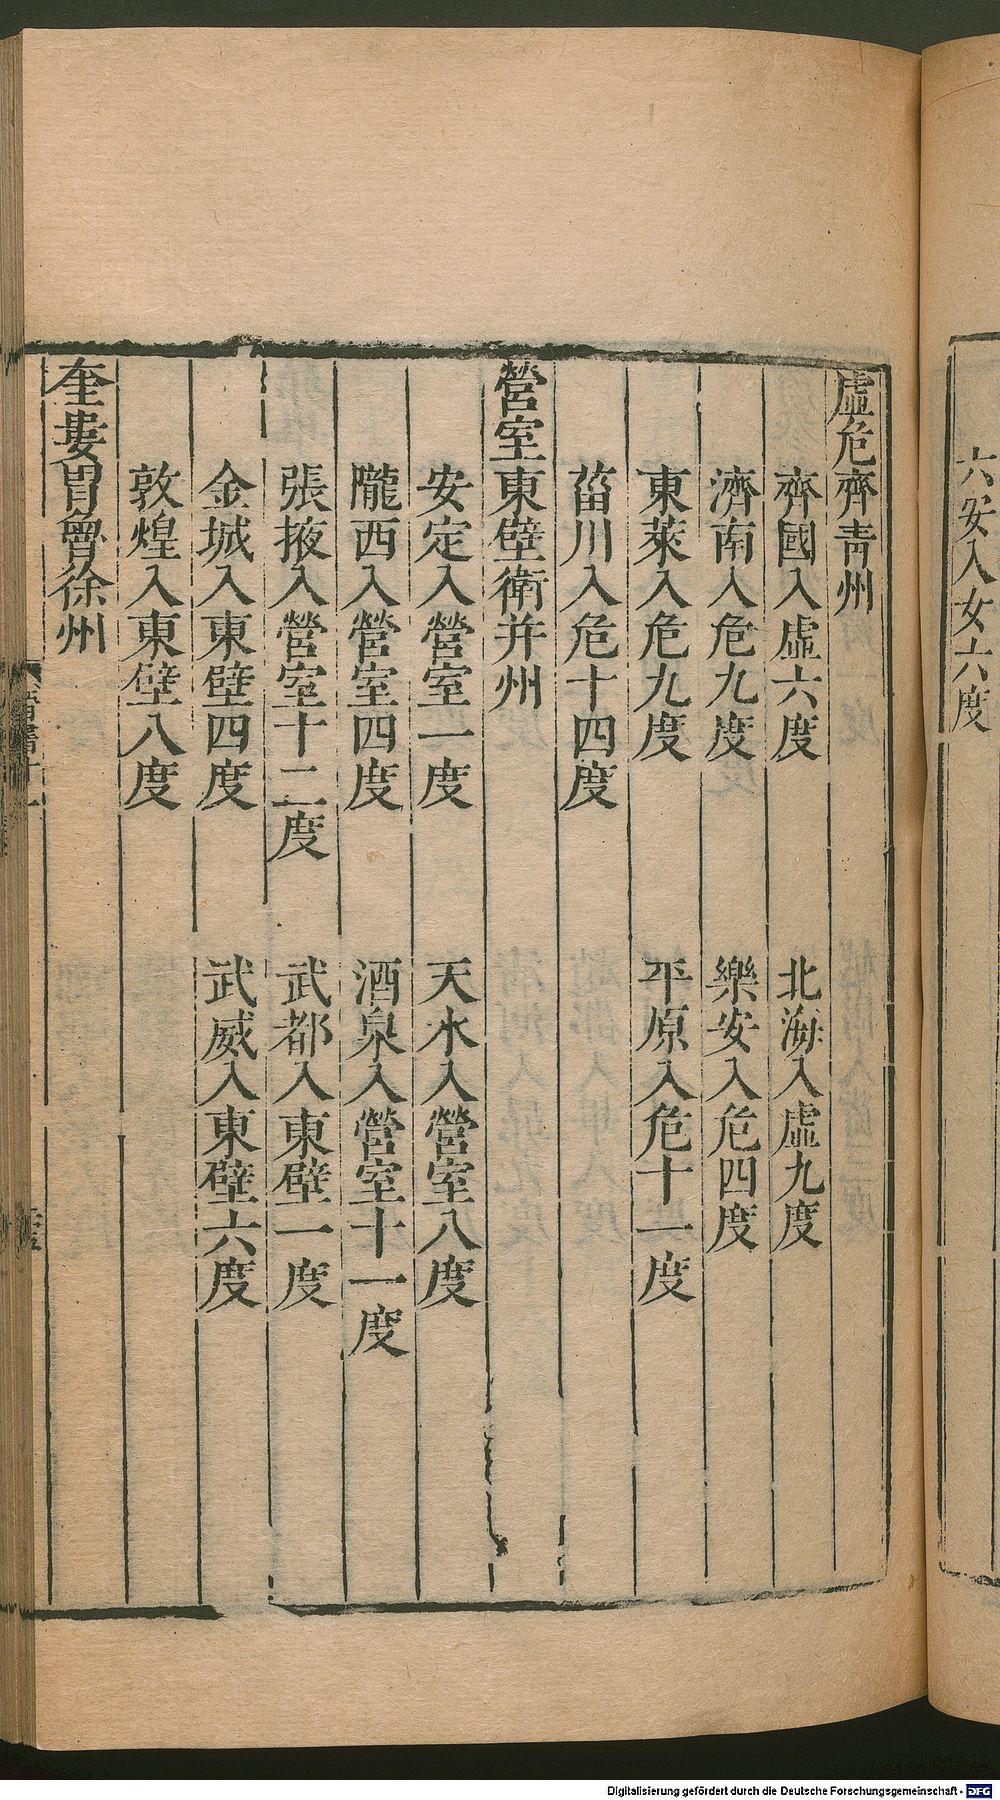 六安入女六度
虛危齊青州
齊國入虛六度　北海入虛九度
濟南入危九度　樂安入危四度
東萊入危九度　平原入危十一度
菑川入危十四度
營室東壁衛并州
安定入營室一度　天水入營室八度
隴西入營室四度　酒泉入營室十一度
張掖入營室十二度　武都入東壁一度
金城入東壁四度　武威入東壁六度
敦煌入東壁八度
奎婁胃魯徐州
Digitalisierung gefördert durch die Deutsche Forschungsgemeinschaft - DFG